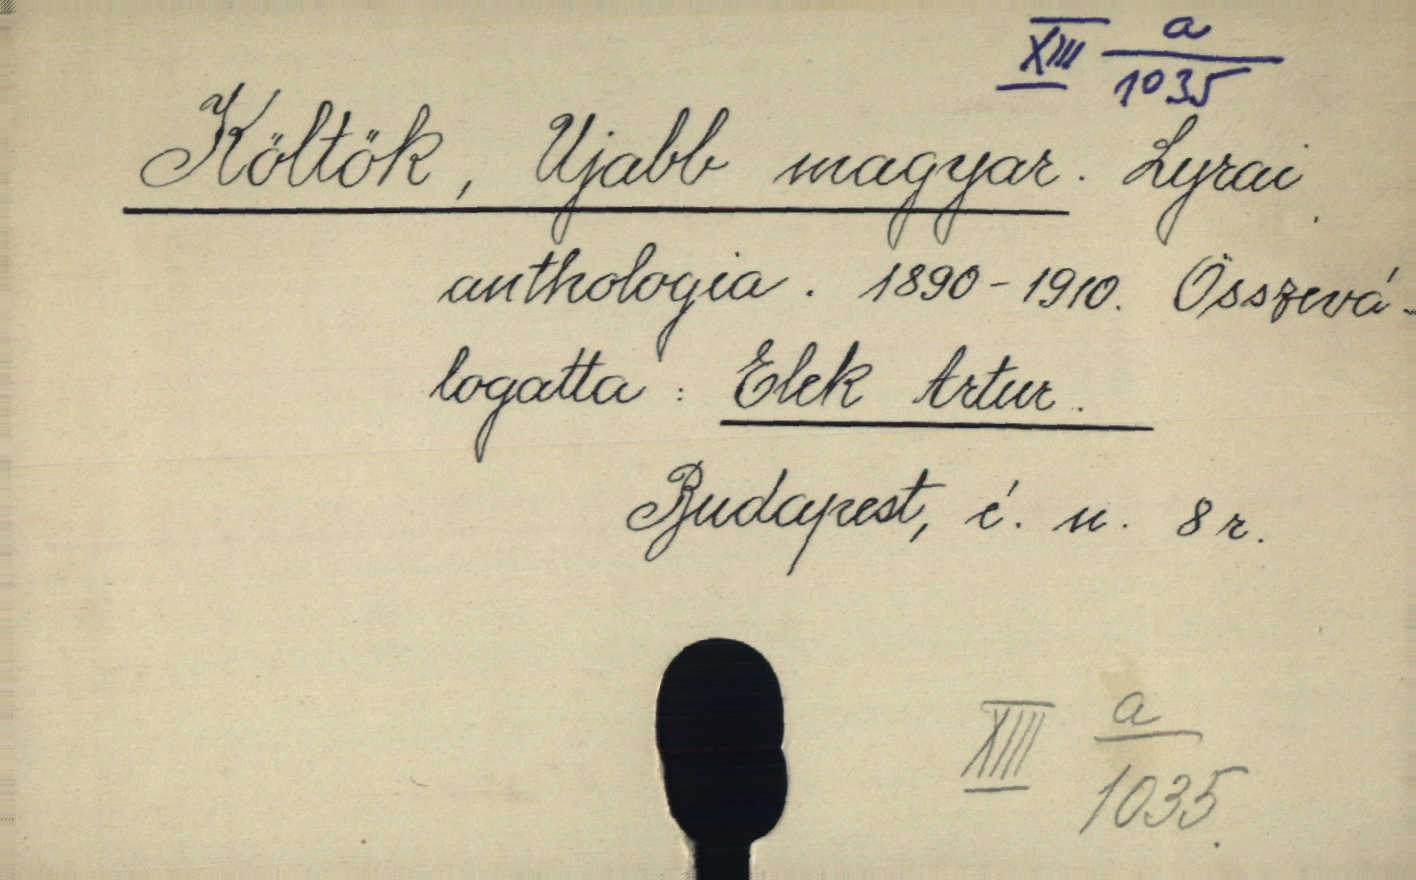 XIII a/1035
Költök, Ujabb magyar. Lyrai
anthologia. 1890-1910. Összevá-
logatta: Elek Artur.
Budapest, é. n. 8 r.
XIII a/1035